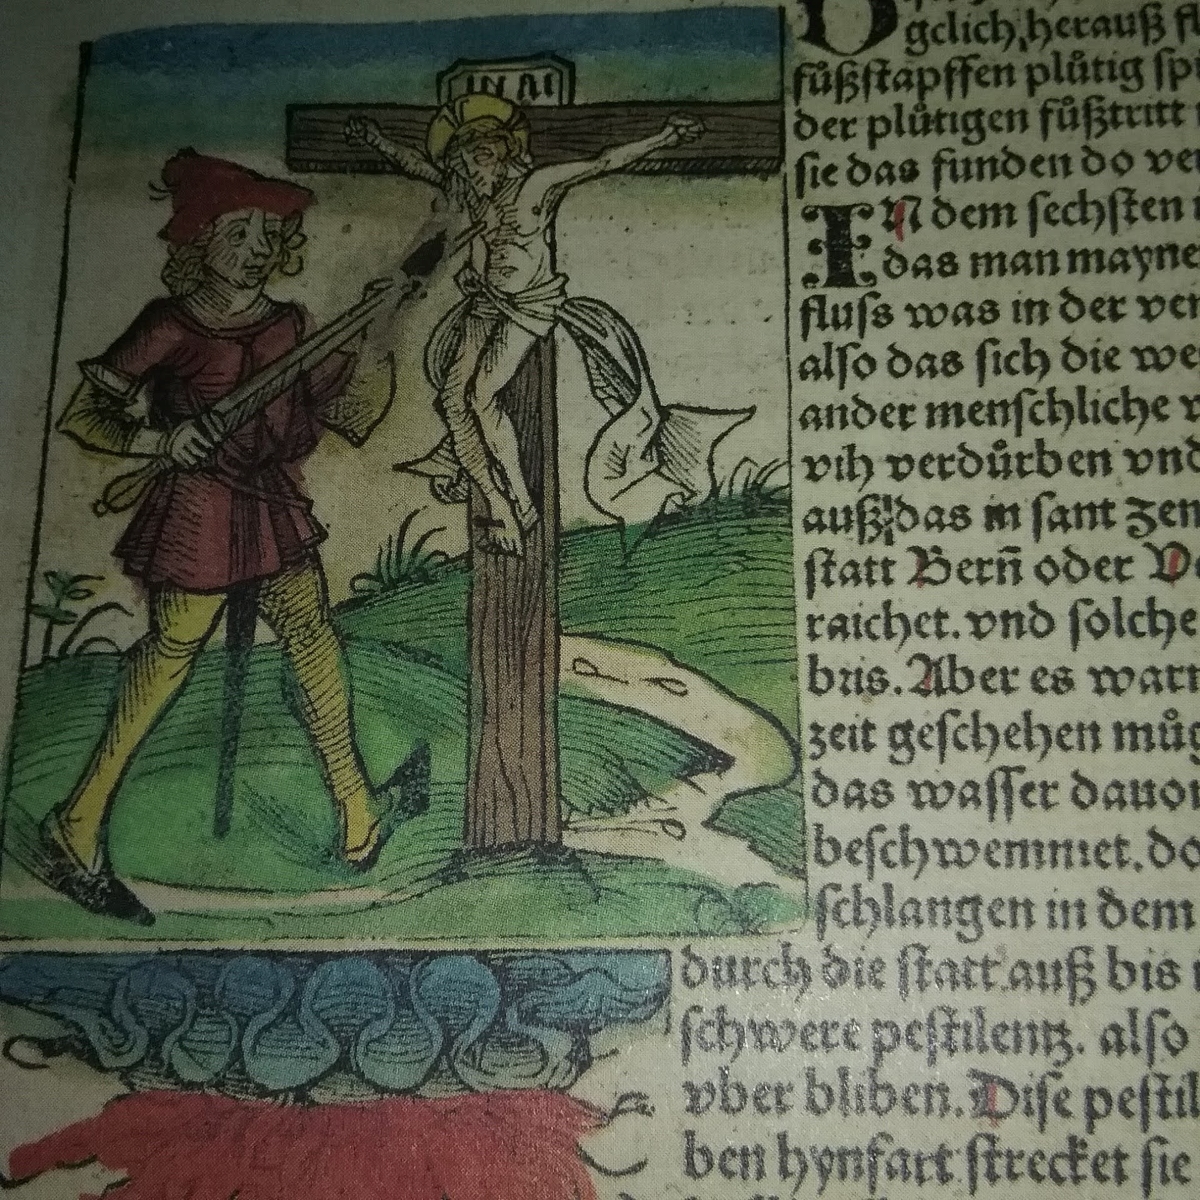 INRI
gclich, herauß fl
fůßstapffen plůtig spr
der plůtigen fůßtritt
sie das funden do ver
IN dem sechsten
das man mayne
fluss was in der ver
also das sich die we
ander menschliche w
vih verdůrben vnd
auß das in sant Zen
statt Bern̄ oder Ve
raichet. vnd solche
bris. Aber es wart
zeit geschehen můg
das wasser dauon
beschwemmet. do
schlangen in dem
durch die statt auß bis
schwere pestilentz. also
vber bliben. Dise pestil
ben hynfart strecket sie